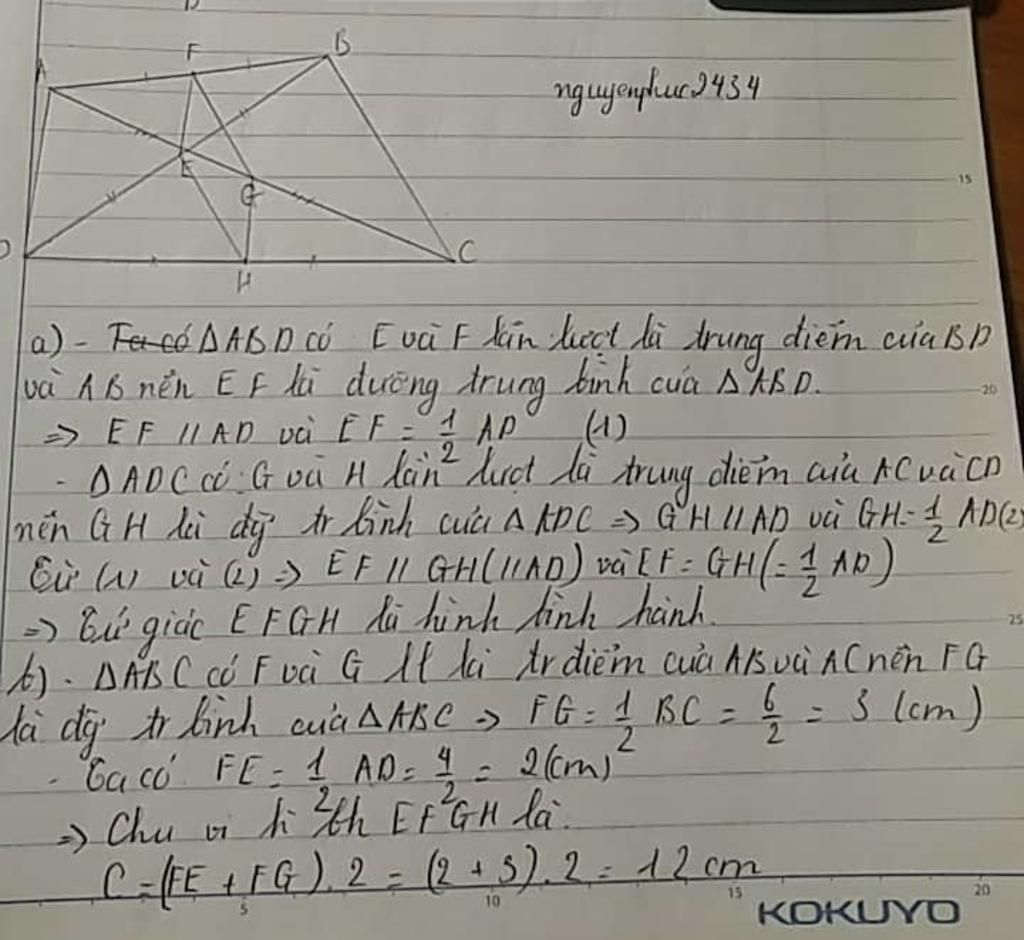 F
B
A
nguyenphuc2434
E
G
15
D
C
H
a) - Ta có ΔABD có E và F lần lượt là trung điểm của BD
và AB nên EF là đường trung bình của ΔABD.
20
=> EF // AD và EF = 1/2 AD (1)
- ΔADC có: G và H lần lượt là trung điểm của AC và CD
nên GH là đg̀ tr bình của ΔADC => GH // AD và GH = 1/2 AD (2)
Từ (1) và (2) => EF // GH (// AD) và EF = GH (= 1/2 AD)
=> Tứ giác EFGH là hình bình hành.
25
b) - ΔABC có F và G ll là tr điểm của AB và AC nên FG
là đg̀ tr bình của ΔABC => FG = 1/2 BC = 6/2 = 3 (cm)
- Ta có FE = 1/2 AD = 4/2 = 2 (cm)
=> Chu vi h bh EFGH là:
C = (FE + FG). 2 = (2 + 3). 2 = 12 cm
5 10 15 20
KOKUYO